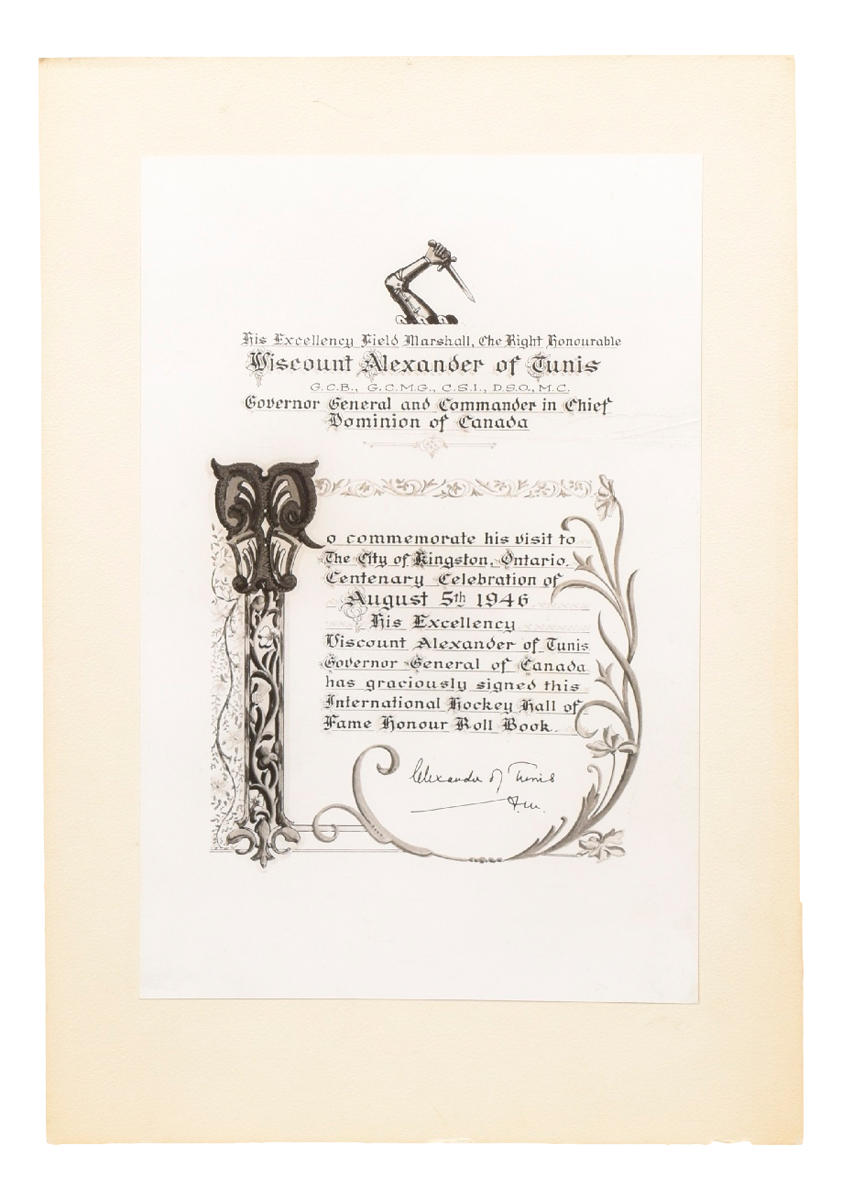 His Excellency Field Marshall, The Right Honourable
Viscount Alexander of Tunis
G.C.B., G.C.M.G., C.S.I., D.S.O., M.C.
Governor General and Commander in Chief
Dominion of Canada
To commemorate his visit to
The City of Kingston, Ontario.
Centenary Celebration of
August 5th 1946
His Excellency
Viscount Alexander of Tunis
Governor General of Canada
has graciously signed this
International Hockey Hall of
Fame Honour Roll Book.
Alexander of Tunis
F.M.